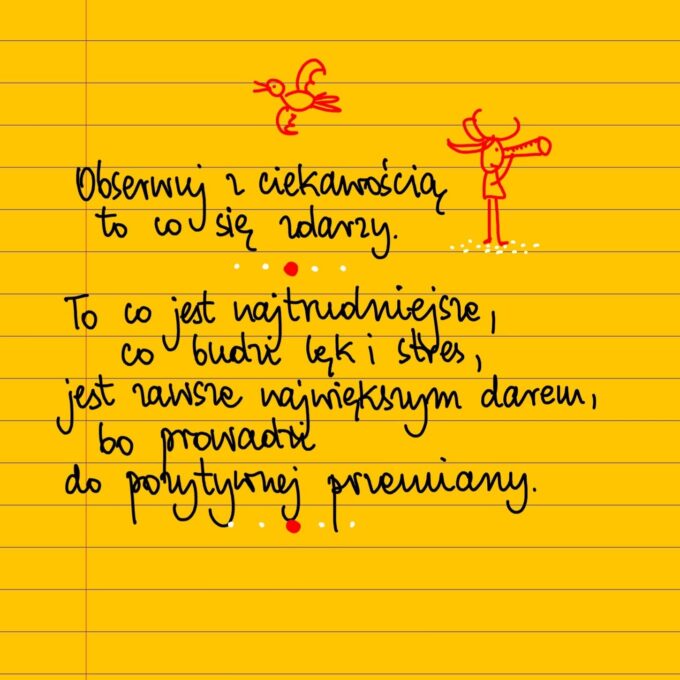 Obserwuj z ciekawością
to co się zdarzy.
To co jest najtrudniejsze,
co budzi lęk i stres,
jest zawsze największym darem,
bo prowadzi
do pozytywnej przemiany.